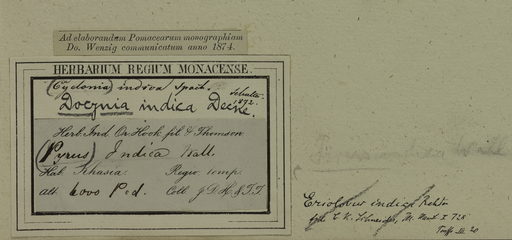 Ad elaborandam Pomacearum monographiam
Do. Wenzig communicatum anno 1874.
HERBARIUM REGIUM MONACENSE.
(Cydonia) indica Spach.
Docynia indica Decne.
1872.
Herb. Ind. Or. Hook. fil. & Thomson
(Pyrus) Indica Wall.
Hab. Khasia. Regio temp.
alt. 6000 Ped. Coll. J.D.H. & T.T.
Pyrus indica Wall
Eriolobus indica
C. K. Schneider, I 728
III 20